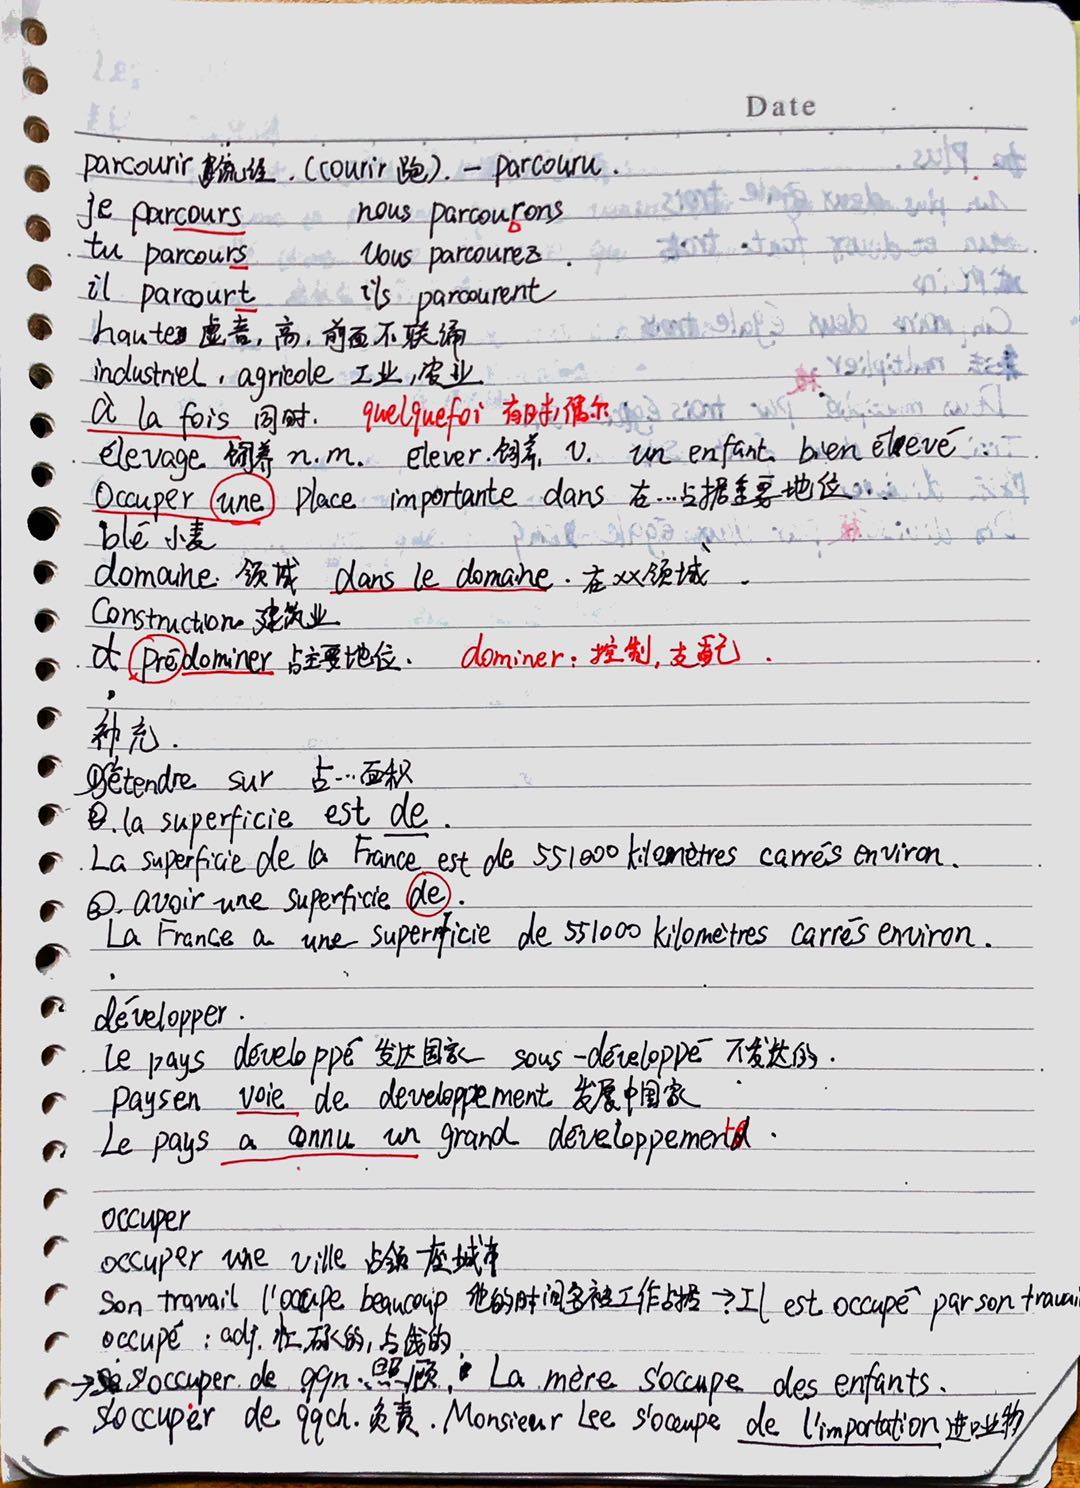 Date
parcourir 流经.(courir 跑).— parcouru.
je parcours nous parcourons
tu parcours vous parcourez.
il parcourt ils parcourent
haute 虚音,高,前面不联诵
industriel, agricole 工业,农业
à la fois 同时. quelquefoi 有时,偶尔
élevage 饲养 n.m. elever.饲养, v. un enfant bien élevé.
Occuper une place importante dans 在…占据重要地位.
blé 小麦
domaine 领域 dans le domaine. 在xx领域.
Construction 建筑业
prédominer 占主要地位. dominer: 控制,支配.
补充.
①s'étendre sur 占…面积
②.la superficie est de.
La superficie de la France est de 551000 kilomètres carrés environ.
③. avoir une superficie de.
La France a une superficie de 551000 kilomètres carrés environ.
développer.
le pays développé 发达国家 sous-développé 不发达的.
Paysen voie de developpement 发展中国家
Le pays a connu un grand développement.
occuper
occuper une ville 占领一座城市
Son travail l'occupe beaucoup 他的时间多被工作占据 →Il est occupé par son travail
occupé : adj. 忙碌的,占线的
→s'occuper de qqn.照顾, La mère s'occupe des enfants.
s'occuper de qqch.负责. Monsieur Lee s'occupe de l'importation